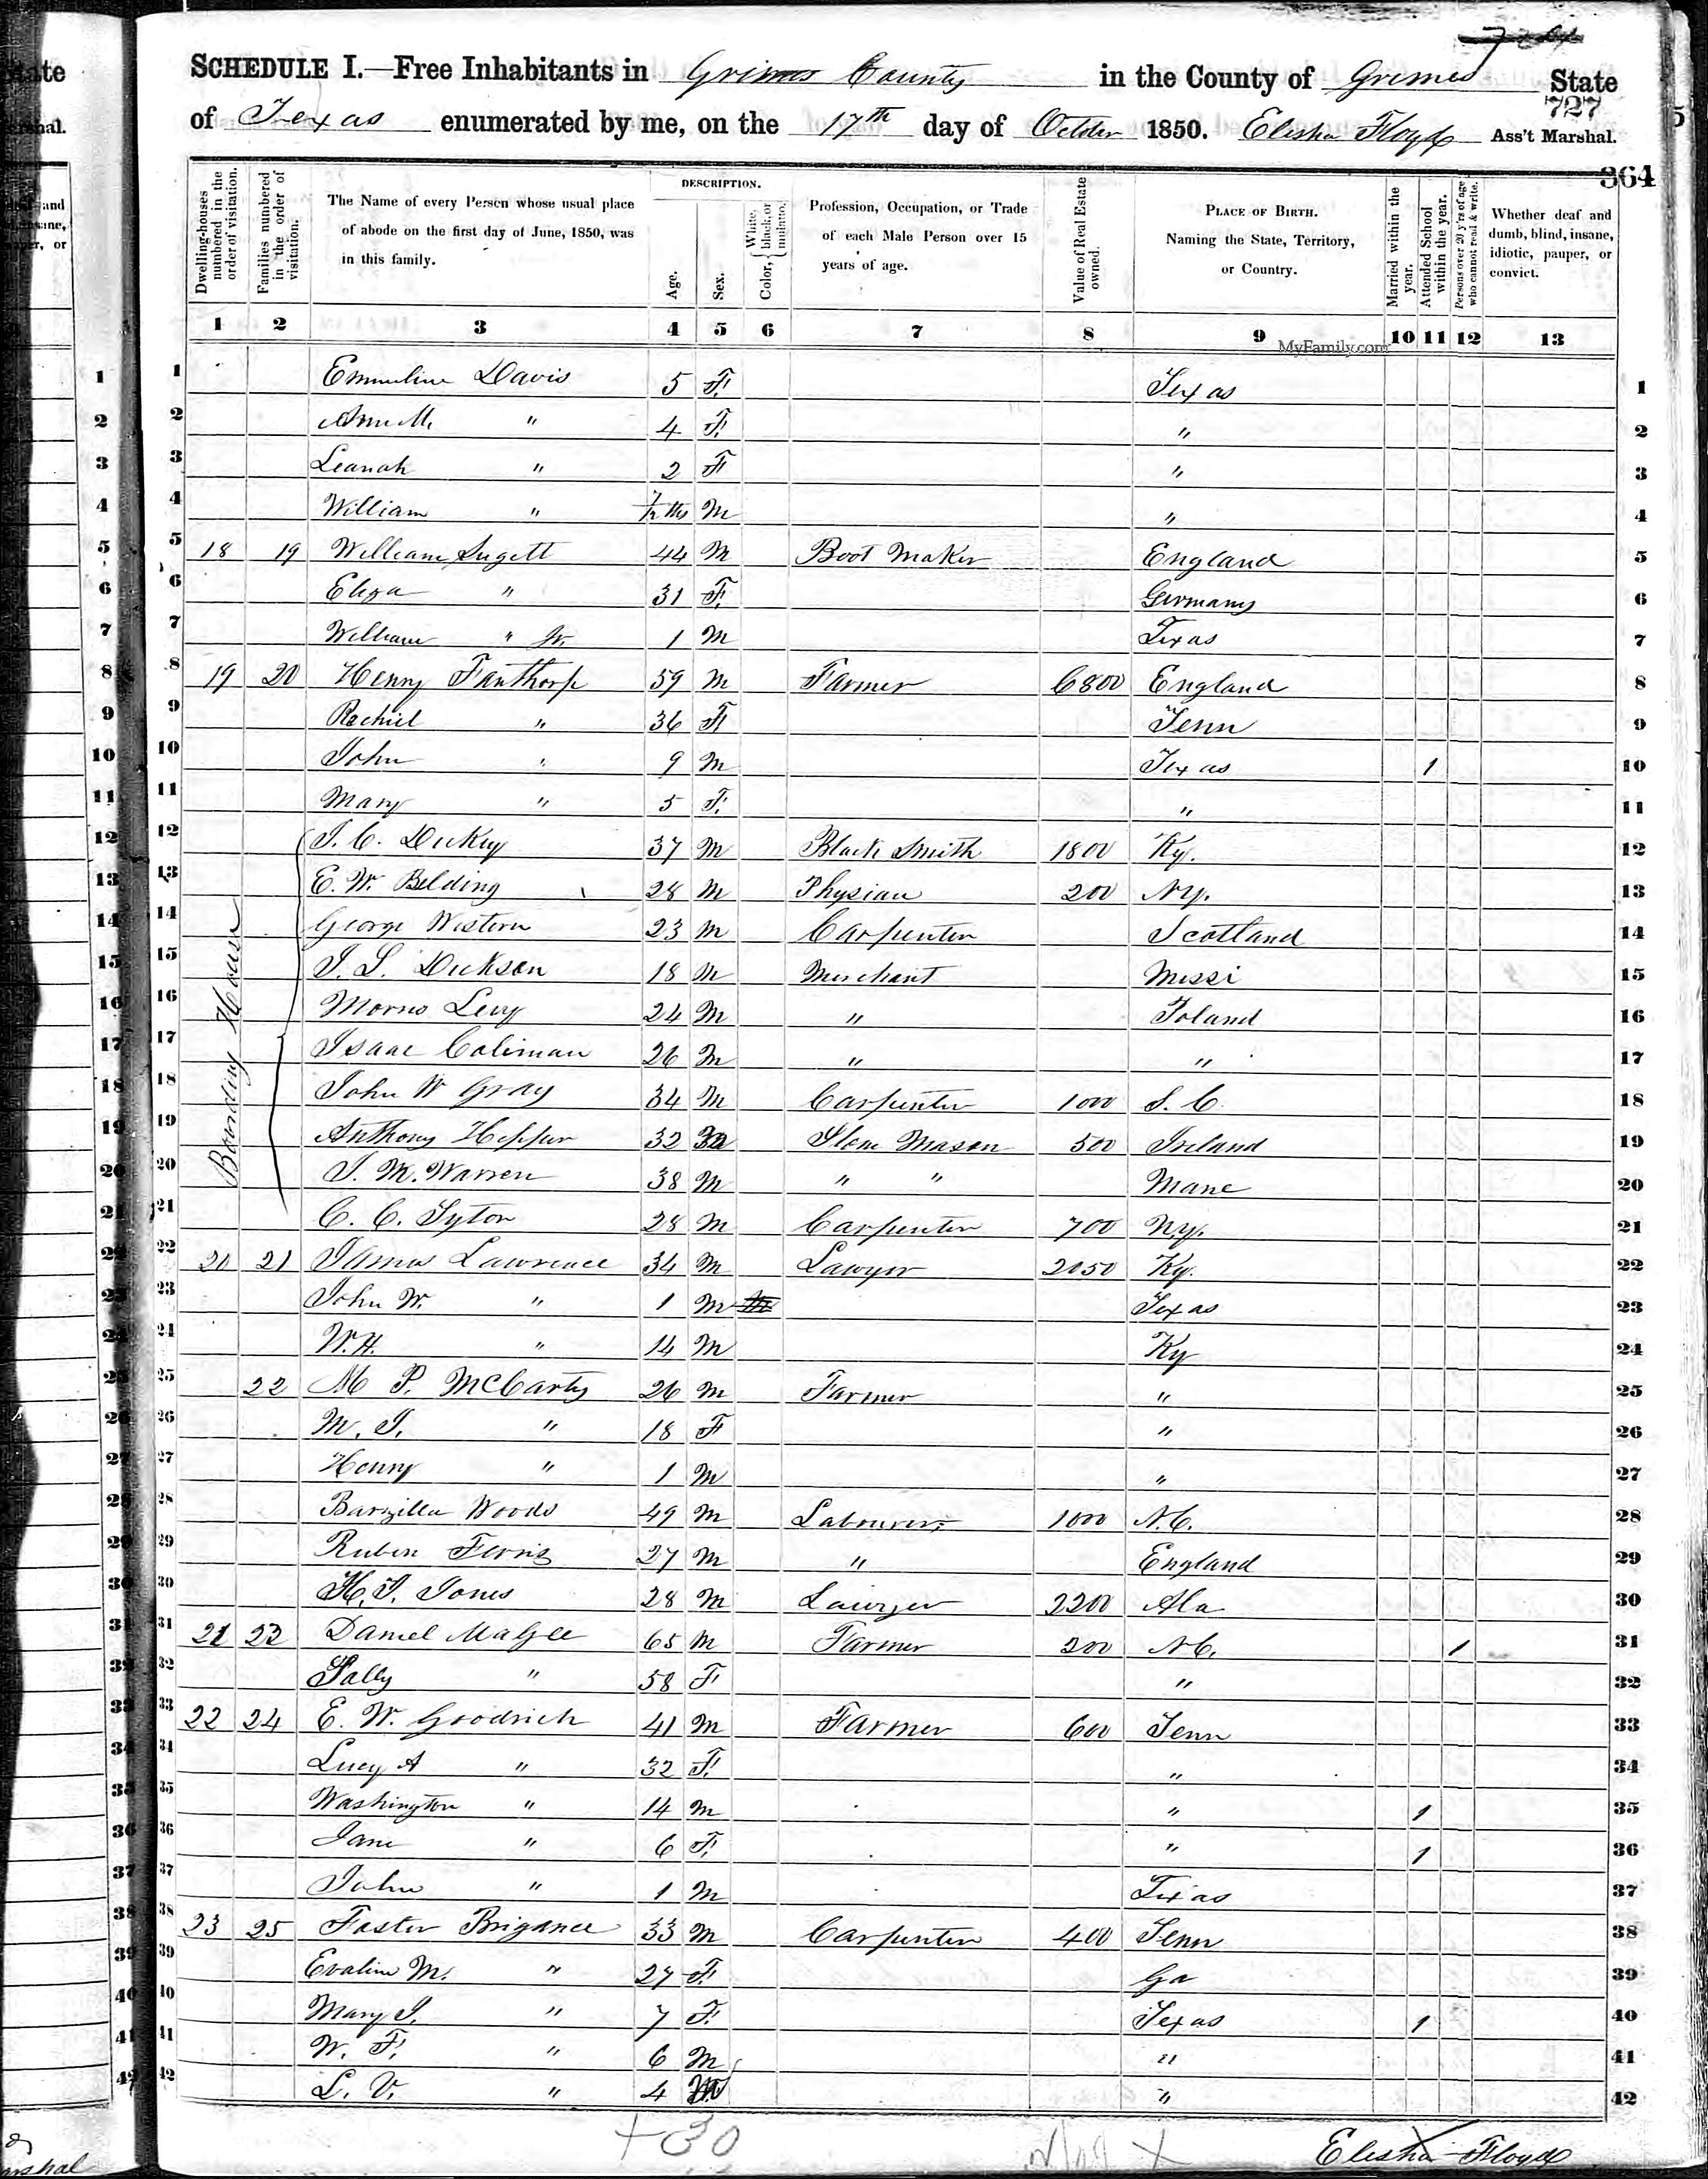 SCHEDULE I.—Free Inhabitants in Grimes County in the County of Grimes State
of Texas enumerated by me, on the 17th day of October 1850. Elisha Floyd Ass't Marshal.
727
364
Dwelling-houses numbered in the order of visitation.
Families numbered in the order of visitation.
The Name of every Person whose usual place of abode on the first day of June, 1850, was in this family.
DESCRIPTION.
Age.
Sex.
Color, White, black, or mulatto.
Profession, Occupation, or Trade of each Male Person over 15 years of age.
Value of Real Estate owned.
PLACE OF BIRTH. Naming the State, Territory, or Country.
Married within the year.
Attended School within the year.
Persons over 20 y'rs of age who cannot read & write.
Whether deaf and dumb, blind, insane, idiotic, pauper, or convict.
1 2 3 4 5 6 7 8 9 10 11 12 13
MyFamily.com
1 Emmeline Davis 5 F. Texas 1
2 Ann M. " 4 F. " 2
3 Leanah " 2 F " 3
4 William " M " 4
5 18 19 William Sugett 44 M Boot Maker England 5
6 Eliza " 31 F. Germany 6
7 William " Jr. 1 M Texas 7
8 19 20 Henry Fanthorp 59 M Farmer 6800 England 8
9 Rachiel " 36 F Tenn 9
10 John " 9 M Texas 1 10
11 Mary " 5 F. " 11
Boarding House
12 J. C. Dickey 37 M Black Smith 1800 Ky. 12
13 E. W. Belding 28 M Physian 200 N.y. 13
14 George Western 23 M Carpenter Scotland 14
15 J. S. Dickson 18 M Merchant Missi 15
16 Morris Levy 24 M " Poland 16
17 Isaac Coleman 26 M " " 17
18 John W Gray 34 M Carpenter 1000 S. C. 18
19 Anthony Hepper 32 Stone Mason 500 Ireland 19
20 J. M. Warren 38 M " " Mane 20
21 C. C. Syton 28 M Carpenter 700 N.y. 21
22 20 21 James Lawrence 34 M Lawyer 2050 Ky. 22
23 John W. " 1 M Texas 23
24 W. H. " 14 M Ky 24
25 22 M P. McCarty 26 M Farmer " 25
26 M. J. " 18 F " 26
27 Henry " 1 M " 27
28 Barzilla Woods 49 M Labourer 1000 N.C. 28
29 Ruben Ferris 27 M " England 29
30 H. J. Jones 28 M Lawyer 2200 Ala 30
31 21 23 Daniel MaGee 65 M Farmer 200 N.C. 1 31
32 Sally " 58 F " 32
33 22 24 E. W. Goodrich 41 M Farmer 600 Tenn 33
34 Lucy A " 32 F. " 34
35 Washington " 14 M " 1 35
36 Jane " 6 F. " 1 36
37 John " 1 M Texas 37
38 23 25 Foster Brigance 33 M Carpenter 400 Tenn 38
39 Evaline M. " 27 F. Ga 39
40 Mary J. " 7 F. Texas 1 40
41 W. F. " 6 M " 41
42 L. V. " 4 " 42
+ 30
Elisha Floyd